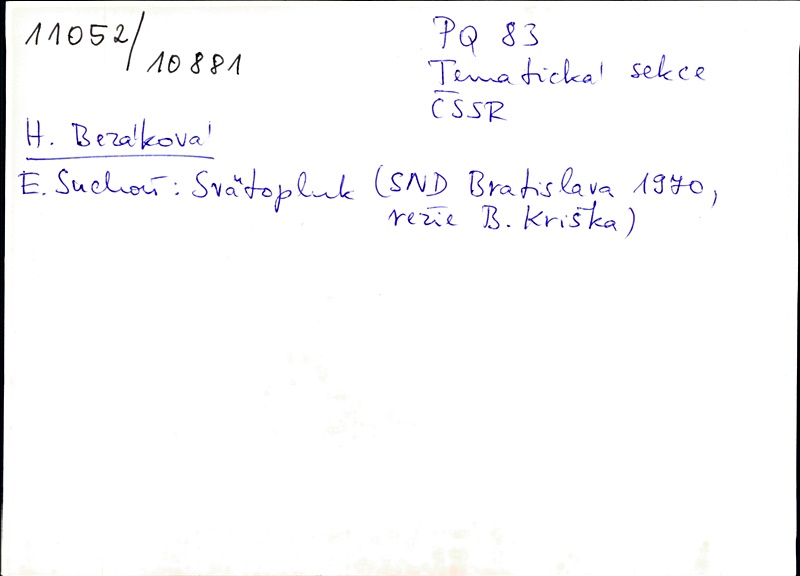 11052/10881
PQ 83
Tematická sekce
ČSSR
H. Bezáková
E. Suchoň: Svätopluk (SND Bratislava 1970,
režie B. Kriška)